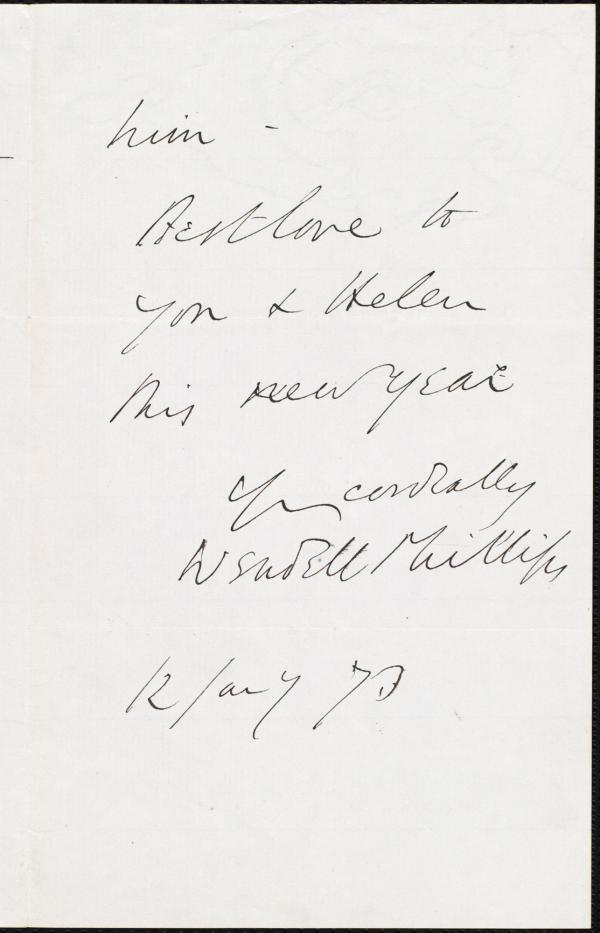 him -
Best love to
you & Helen
this new year
Yrs cordially
Wendell Phillips
12 Jany 73